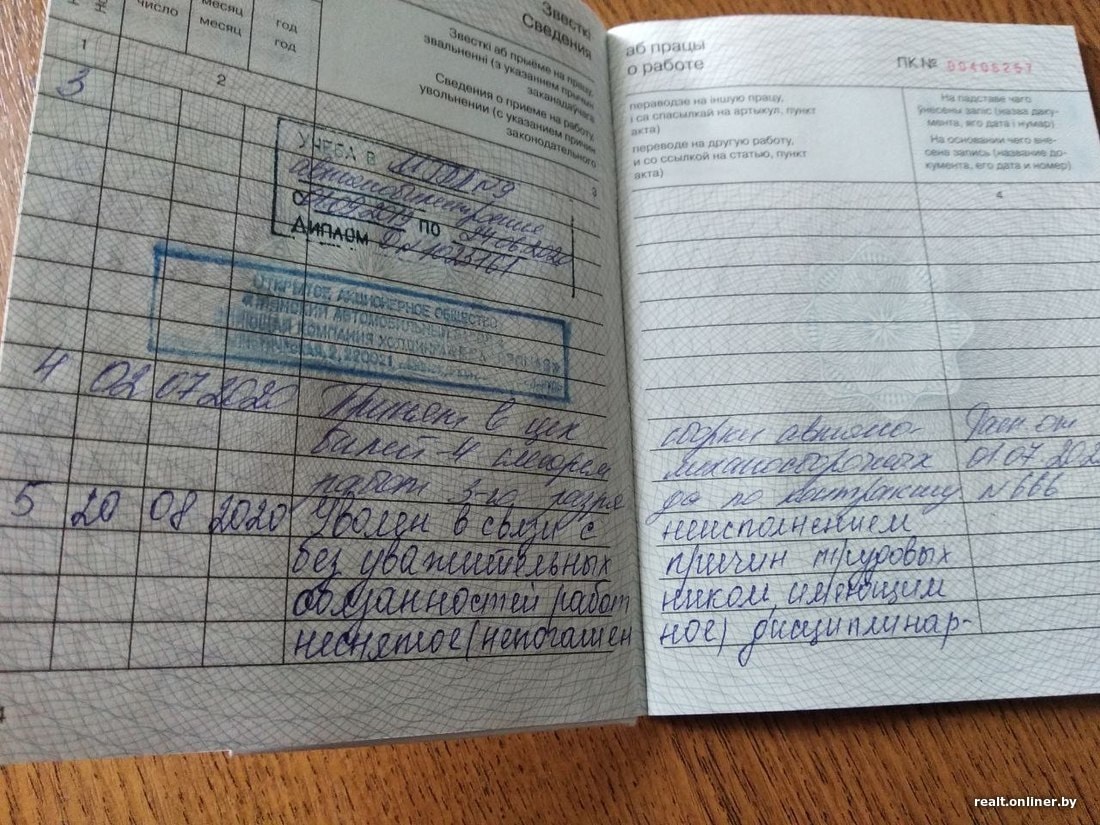 число
месяц
месяц
год
год
Звесткі
Сведения
Звесткі аб прыёме на працу,
звальненні (з указаннем прычын
заканадаўчага
Сведения о приеме на работу,
увольнении (с указанием причин
законодательного
1
2
3
3
УЧЕБА В №9
ПО 2020
ДИПЛОМ
ОТКРЫТОЕ АКЦИОНЕРНОЕ ОБЩЕСТВО
АВТОМОБИЛЬНЫЙ
КОМПАНИЯ ХОЛДИНГА
2, 220021
4 02 07 2020 Принят в цех
5 20 08 2020 Уволен в связи с
без уважительных
обязанностей работ
неснятое (непогашен
аб працы
о работе
ПК № 00406257
пераводзе на іншую працу,
і са спасылкай на артыкул, пункт
акта)
переводе на другую работу,
и со ссылкой на статью, пункт
акта)
На падставе чаго
ўнесены запіс (назва даку-
мента, яго дата і нумар)
На основании чего вне-
сена запись (название до-
кумента, его дата и номер)
4
сборки автомо-
механосборочных
да по контракту
неисполнением
причин трудовых
ником, имеющим
ное) дисциплинар-
от
01 07 2020
№666
realt.onliner.by